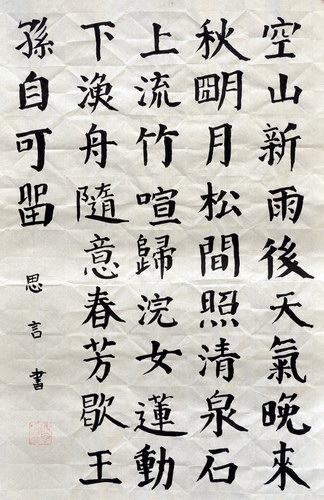 空山新雨後天氣晚來
秋朙月松間照清泉石
上流竹喧歸浣女蓮動
下漁舟隨意春芳歇王
孫自可留
思言書